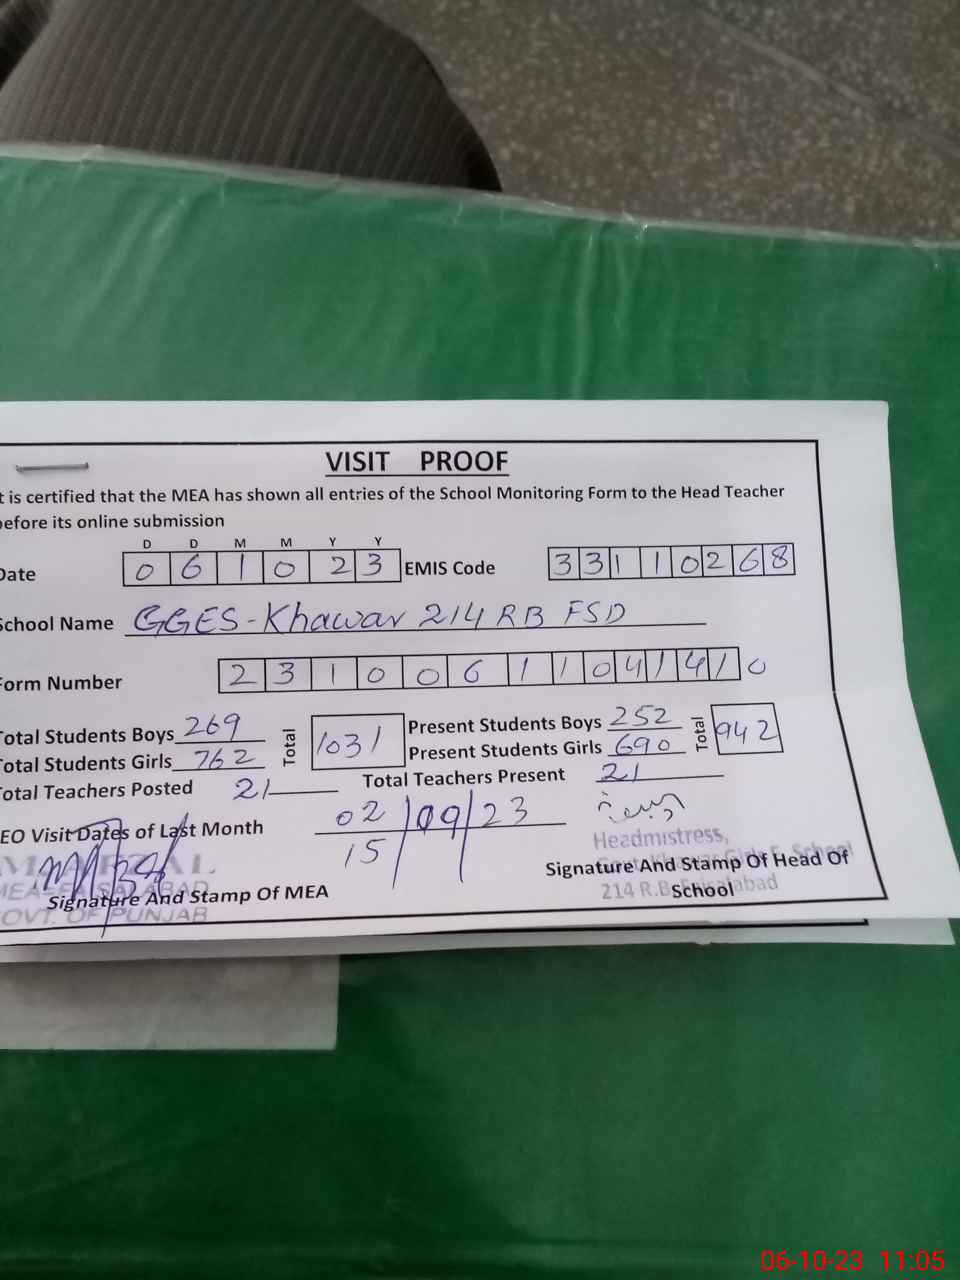 VISIT PROOF
t is certified that the MEA has shown all entries of the School Monitoring Form to the Head Teacher
before its online submission
D D M M Y Y
Date 0 6 1 0 2 3 EMIS Code 3 3 1 1 0 2 6 8
School Name GGES-Khawar 214 RB FSD
Form Number 2 3 1 0 0 6 1 1 0 4 1 4 1 0
Total Students Boys 269 Total 1031 Present Students Boys 252 Total 942
Total Students Girls 762 Present Students Girls 690
Total Teachers Posted 21 Total Teachers Present 21
EO Visit Dates of Last Month 02/09/23
15
Headmistress,
Signature And Stamp Of Head Of
School
214 R.B. Faisalabad
MEA FAISALABAD
Signature And Stamp Of MEA
GOVT. OF PUNJAB
06-10-23 11:05